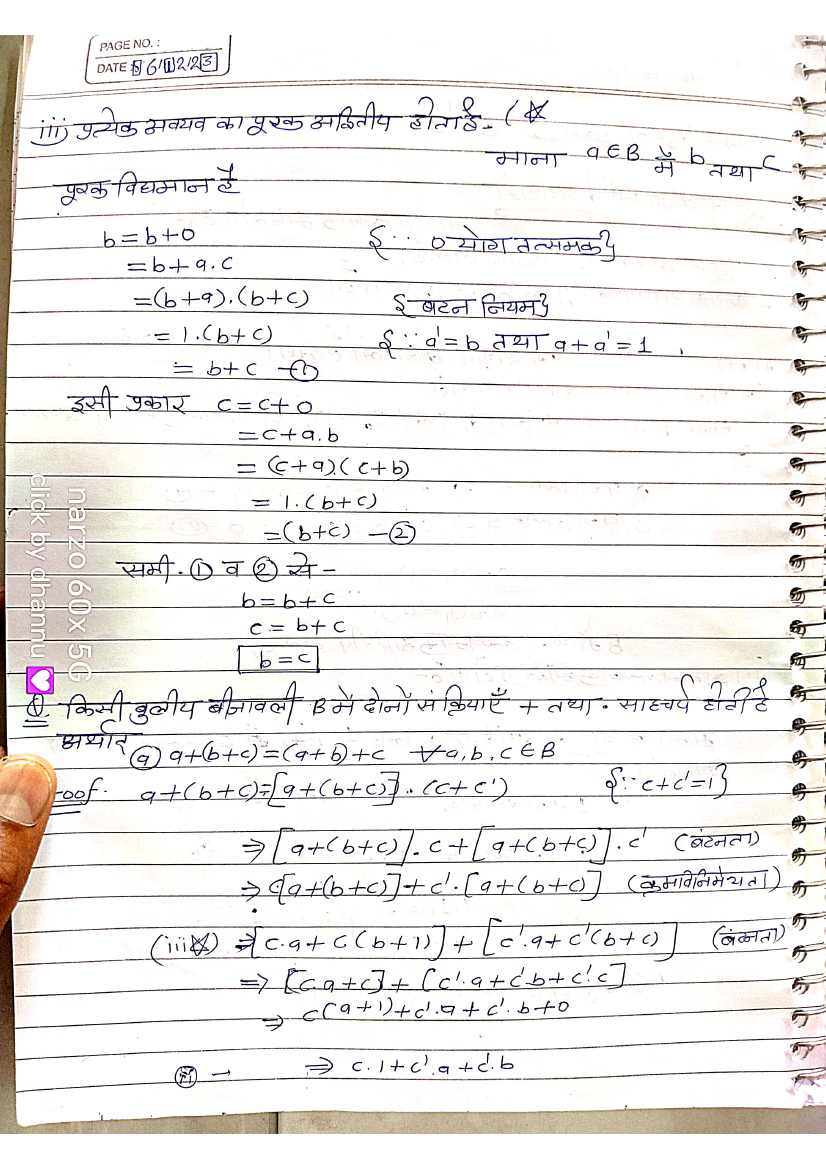 PAGE NO. :
DATE 06/12/23
iii) प्रत्येक अवयव का पूरक अद्वितीय होता है- (☆
माना a∈B में b तथा c
पूरक विद्यमान है
b = b+0 {∵ 0 योग तत्समक}
= b+a.c
=(b+a).(b+c) {बंटन नियम}
= 1.(b+c) {∵ a'=b तथा a+a'=1
= b+c —①
इसी प्रकार c=c+0
=c+a.b
= (c+a).(c+b)
= 1.(b+c)
=(b+c) —②
समी. ① व ② से -
b=b+c
c=b+c
b=c
Q. किसी बुलीय बीजावली B में दोनों संक्रियाएँ + तथा . साहचर्य होती है
अर्थात् ⓐ a+(b+c)=(a+b)+c ∀a,b,c∈B
oof. a+(b+c)=[a+(b+c)].(c+c') {∵ c+c'=1}
⇒ [a+(b+c)].c+[a+(b+c)].c' (बंटनता)
⇒ c[a+(b+c)]+c'.[a+(b+c)] (क्रमविनिमेयता)
(iii☆) ⇒[c.a+c(b+1)]+[c'.a+c'(b+c)] (बंटनता)
⇒ [c.a+c]+[c'.a+c'.b+c'.c]
⇒ c(a+1)+c'.a+c'.b+0
⇒ c.1+c'.a+c'.b
narzo 60x 5G
click by dhannu